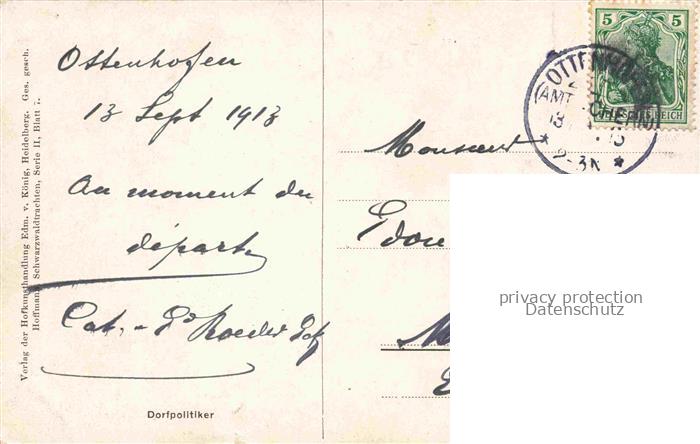 Verlag der Hofkunsthandlung Edm. v. König, Heidelberg. Ges. gesch.
Hoffmann, Schwarzwaldtrachten, Serie II, Blatt 7.
Ottenhofen
13 Sept 1913
Au moment du
départ
Dorfpolitiker
5 5
DEUTSCHES REICH
OTTENHÖFEN
(AMT ACHERN)
13
* 2-3N *
Monsieur
Edou
privacy protection
Datenschutz